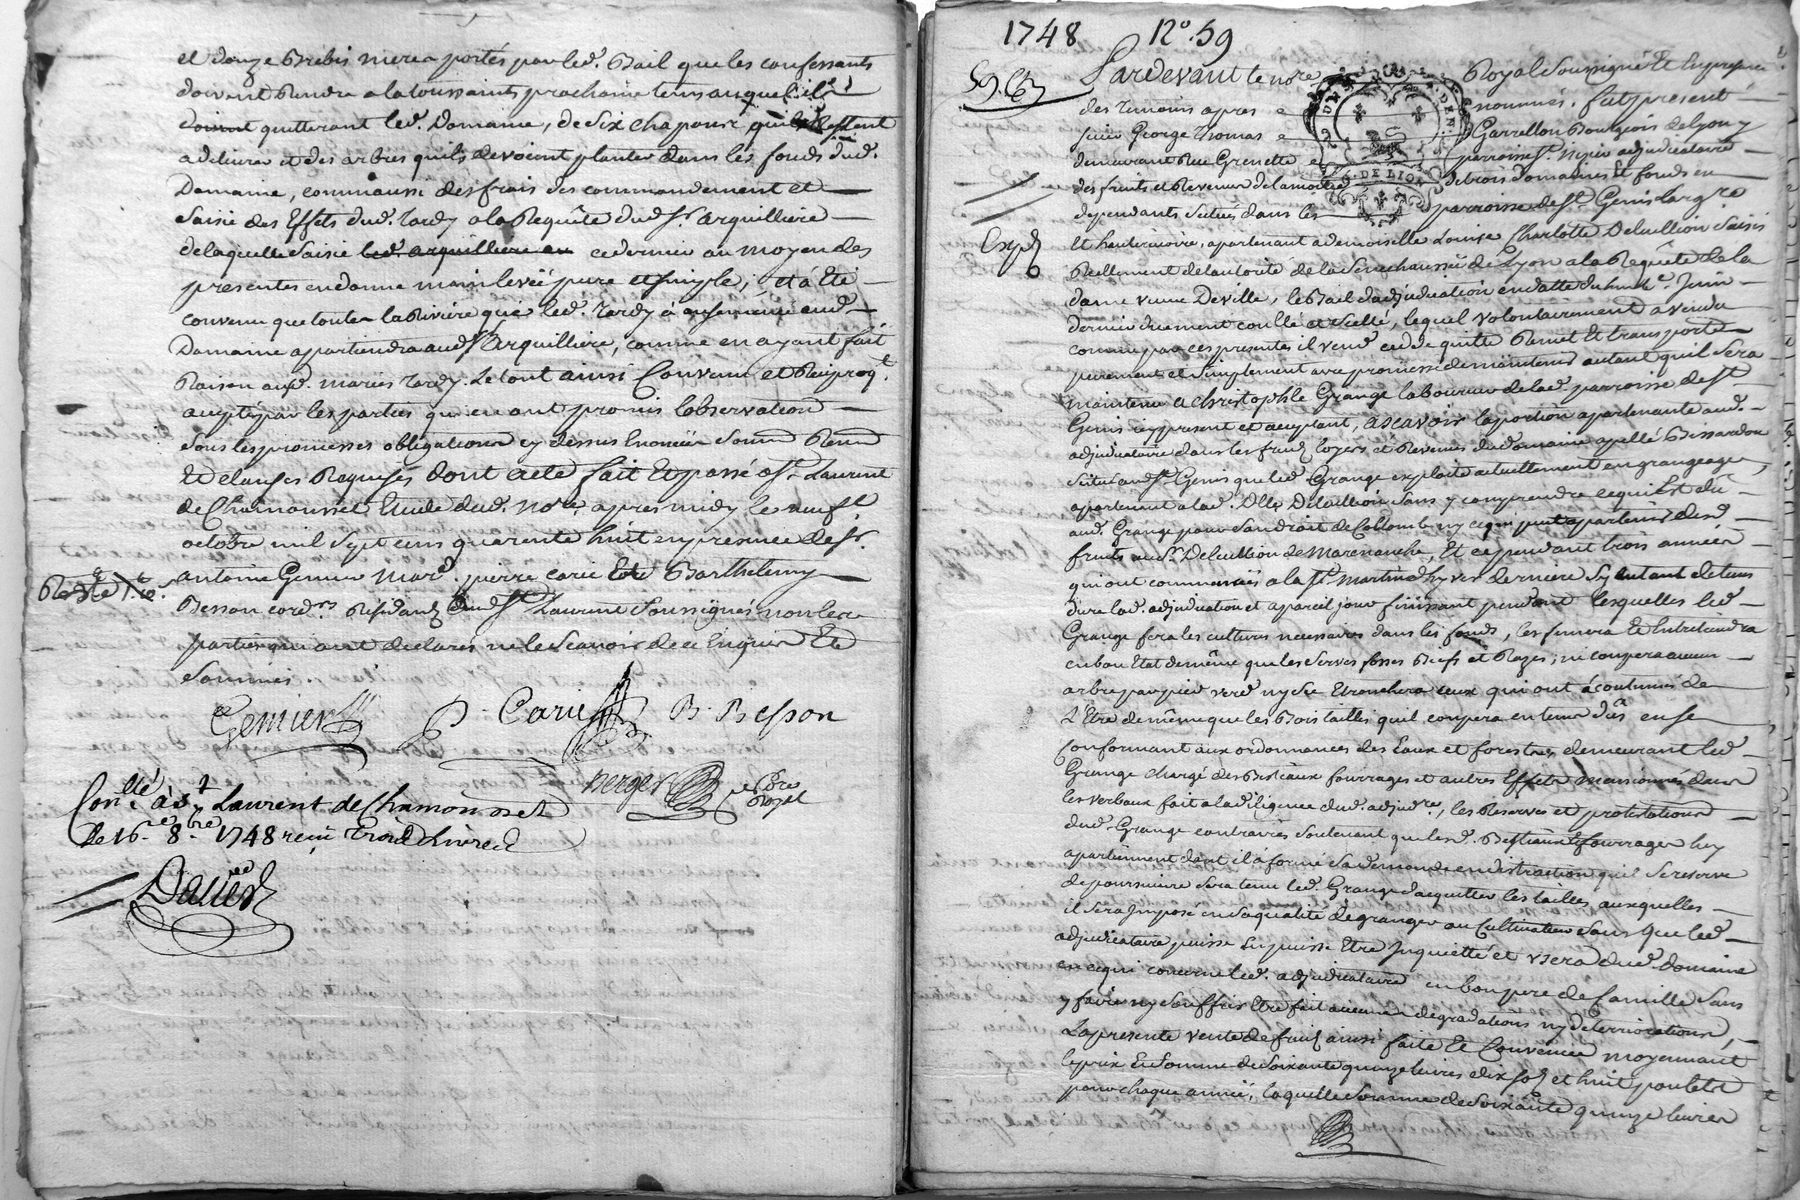 et douze Brebis meres portés par led. Bail que les confessants
doivent Rendre a la toussaints prochaine tems auquel ils
quitteront led. Domaine, de six chapons qu'ils
a delivrer et des arbres qu'ils devoient planter dans les fonds dud.
Domaine, comm'aussi des frais des commandement et
saisie des Effets dud. Tardy a la Requête dud. Sr. arquilliere
de laquelle saisie led. arquilliere au ce dernier au moyen des
presentes en donne mainlevée pure et simple, et a été
convenu que toute la Riviere que led. Tardy a ensemencé aud.
Domaine apartiendra aud. Sr. Arquilliere, comme en ayant fait
Raison aux d. mariés Tardy. Le tout ainsi Convenu et Reciproqt.
accepté par les parties qui en ont promis l'observation
sous les promesses obligations cy dessus Soumon Renon
Et clauses Requises dont acte fait Et passé a St. Laurent
de Chamousset Etude dud. nore. apres midy le neuf
octobre mil sept cens quarente huit en presence de Sr.
antoine Gemier Mard. pierre carie Et Barthelemy
Besson cordrs. Residants aud. St. Laurent Soussignés non les
parties qui ont declarés ne le Scavoir de ce Enquis Et
Sommés.
Gemier P. Carie B. Besson
Berger nore Royal
Conllé. à St. Laurent de Chamousset
le 16e. 8bre. 1748 reçu Trois Livres
1748 No. 59
Pardevant le nore Royal Soussigné Et En presence
des Temoins apres nommés, fut present
sieur George Thomas Garrellon Bourgeois de Lyon y
demeurant Rue Grenette parroisse St. Nizier adjudicataire
G. DE LION
des fruits et Revenus de la moitié de trois domaines Et fonds en
dependants situés dans les parroisse de St. Genis Largre
Expd
Et hauterivoire, apartenant a demoiselle Louise Charlotte Delaillion saisis
Reellement de l'autorité de la Senechaussée de Lyon a la Requête de la
dame veuve Deville, le Bail d'adjudication en datte du Juin
dernier duement collé et Scellé, lequel volontairement a vendu
comme par ces presentes il vend cedde quitte Remet Et transporte
purement et simplement avec promesse de maintenir autant qu'il sera
maintenu a christophle Grange laboureur de lad. parroisse de St.
Genis cy present et acceptant, ascavoir la portion apartenante aud.
adjudicataire dans les fruits loyers et Revenus du domaine apellé Bissardon
situé aud. St. Genis que led. Grange exploite actuellement en grangeage,
apartenant a lad. Dlle. Delaillion sans y comprendre ce qui Est dû
aud. Grange pour son droit de Collomb ny ce qui peut apartenir desd.
fruits au Sr. Delaillion de Marenanche, Et ce pendant trois années
qui ont commencés a la St. Martin d'hyver derniere Sy tant et tems
dure lad. adjudication et a pareil jour finissant pendant lesquelles led.
Grange fera les cultures necessaires dans les fonds, les fumera Et Entretiendra
en bon Etat de même que les serves fosses Biefs et Razes; ni coupera aucun
arbre par pied verd ny sec Etronchera ceux qui ont acoutumés de
L'Etre de même que les Bois taillis qu'il coupera en tems dûs en se
Conformant aux ordonnances des Eaux et forests, demeurant led.
Grange chargé des Bestiaux fourrages et autres Effets mentionnés dans
les verbaux fait a la diligence dud. adjudre, les Reserves et protestations
dud. Grange contraires soutenant que lesd. Bestiaux Et fourrages luy
apartiennent dont il a formé sa demande en distraction qu'il se reserve
de poursuivre sera tenu led. Grange d'acquitter les tailles auxquelles
il sera Imposé en sa qualité de granger ou Cultivateur sans que led.
adjudicataire puisse Etre Inquietté et usera dud. domaine
en ce qui concerne led. adjudicataire en bon pere de famille sans
y faire ny souffrir Etre fait aucunes degradations ny deteriorations,
La presente vente de fruits ainsi faite Et Convenüe moyennant
le prix Et somme de soixante quinze livres dix sols et huit poulets
pour chaque année, laquelle somme de soixante quinze livres